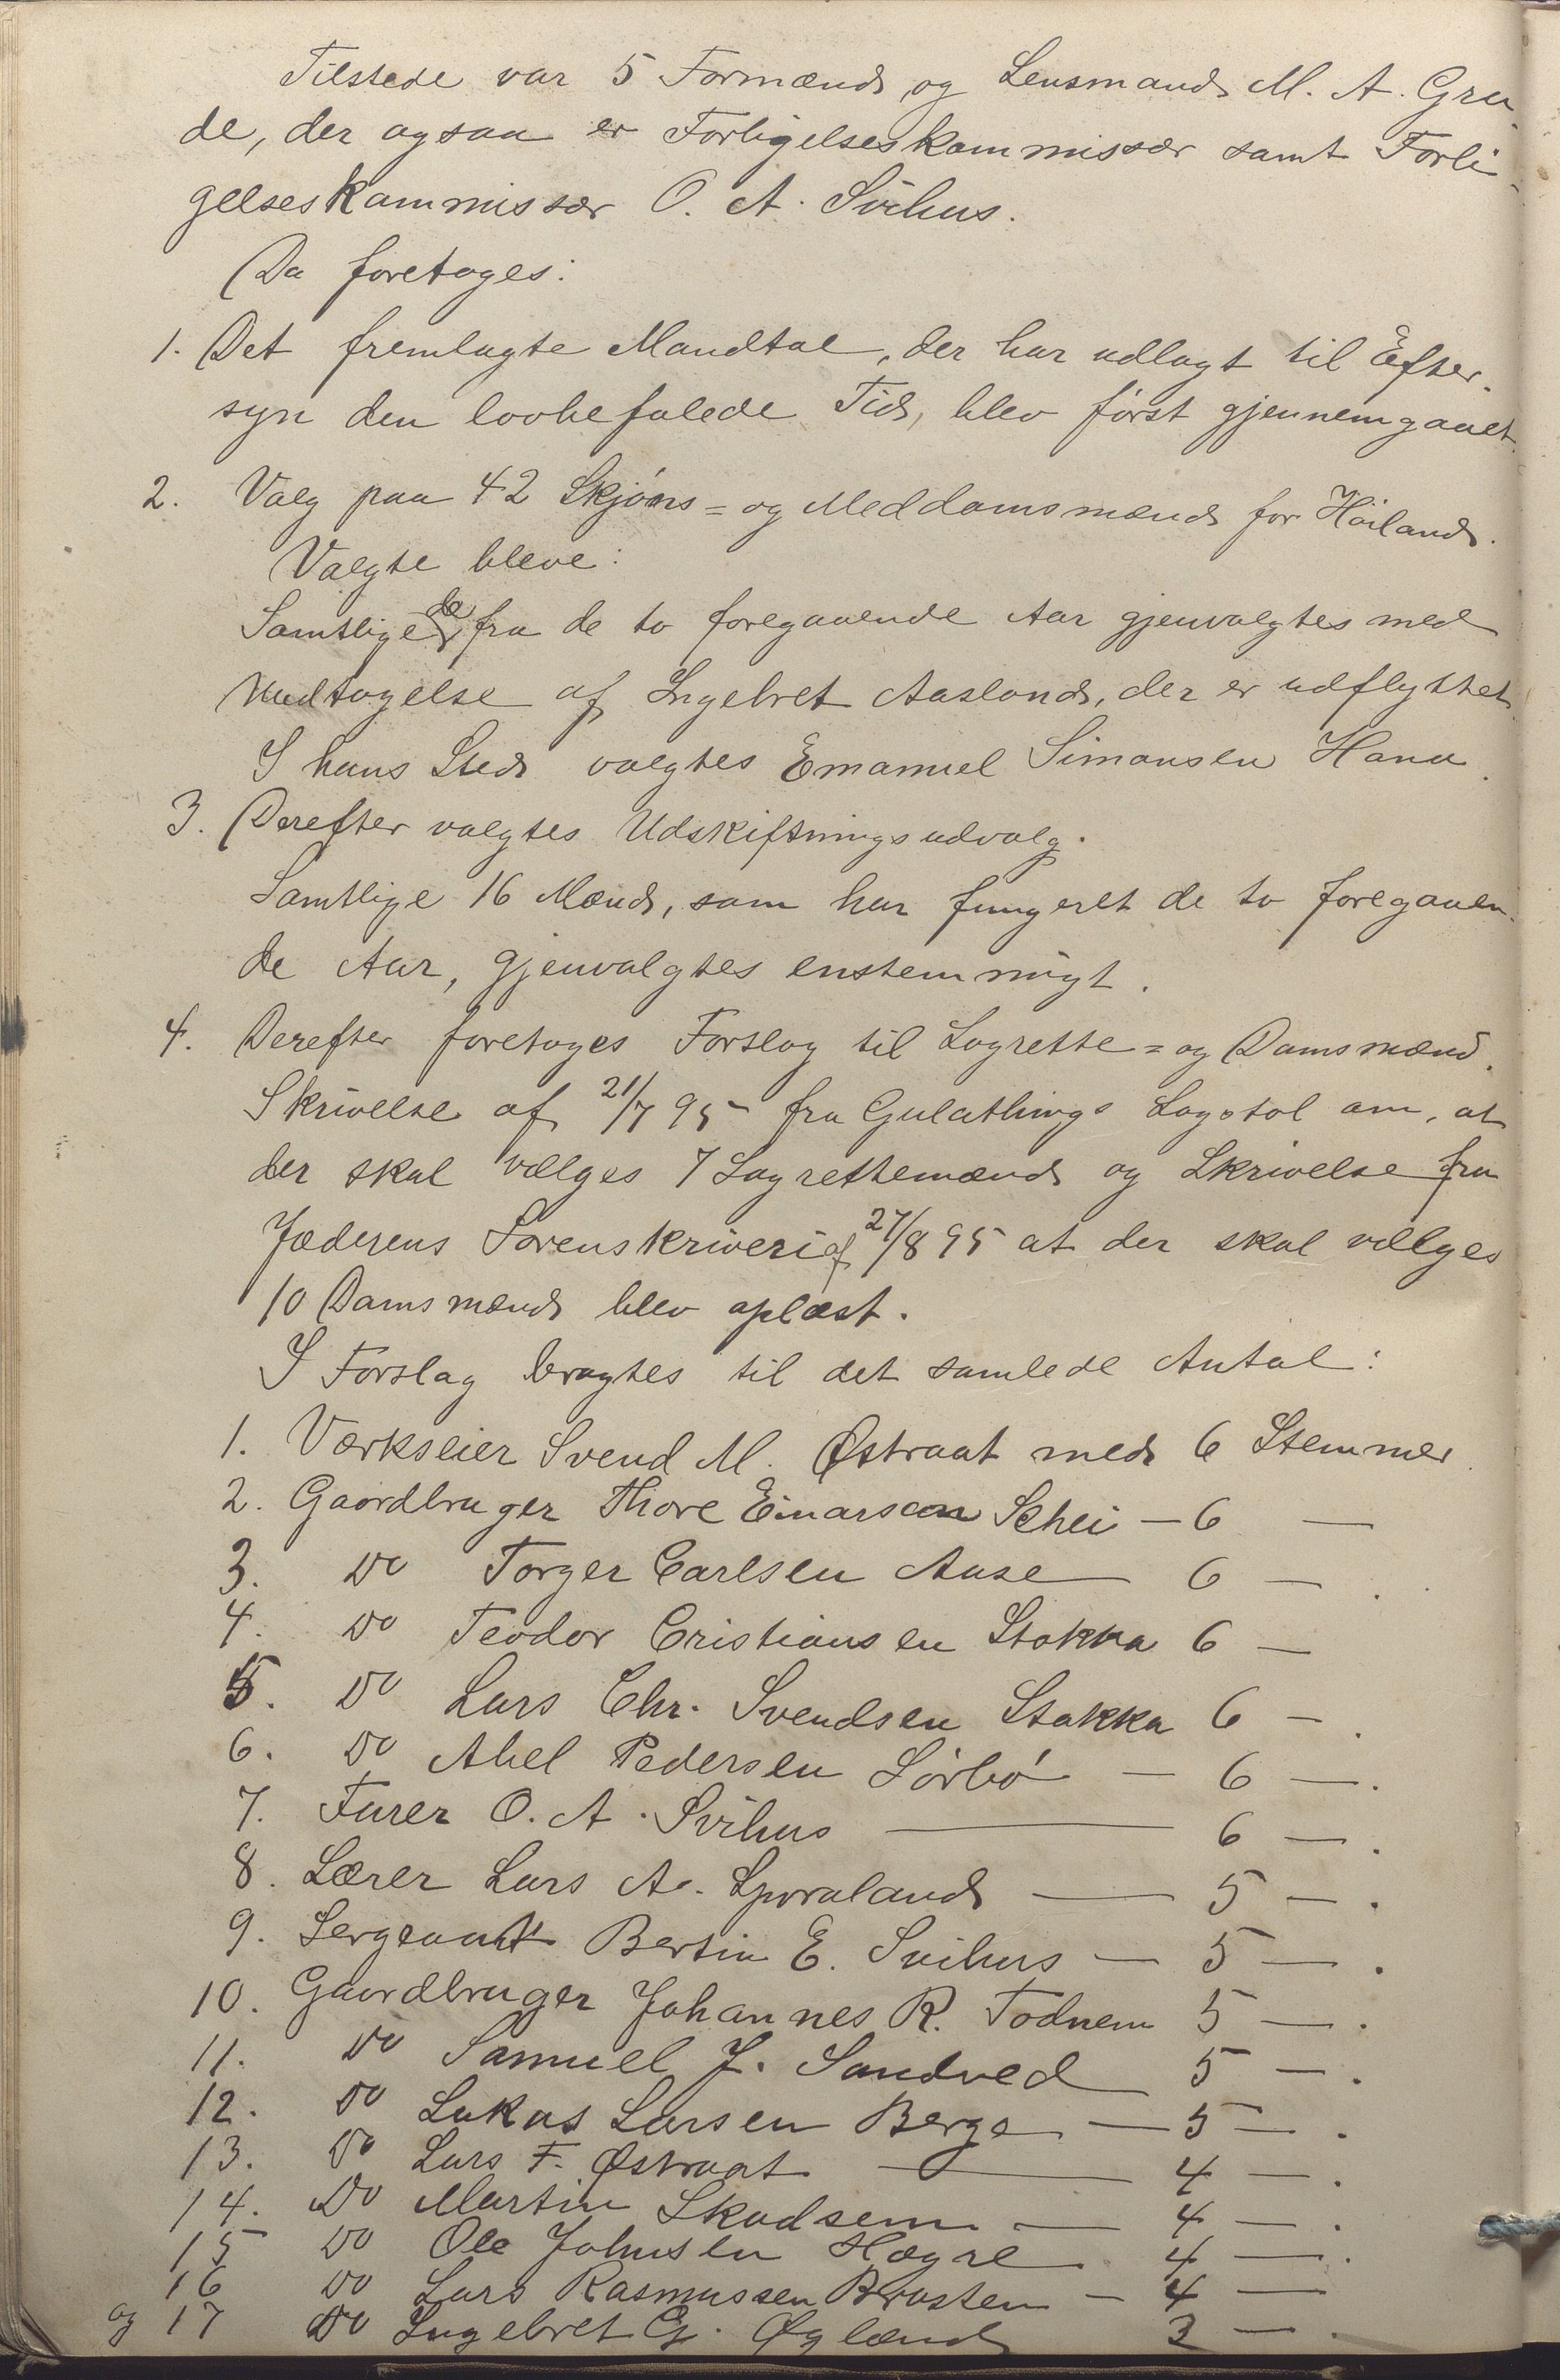 Tilstede var 5 Formænd og Lensmand M. A. Gru-
de, der ogsaa er Forligelseskommissær samt Forli-
gelseskommissær O. A. Svihus.
Da foretoges:
1. Det fremlagte Mandtal, der har udlagt til Efter-
syn den lovbefalede Tid, blev först gjennemgaaet.
2. Valg paa 42 Skjöns= og Meddomsmænd for Höiland.
Valgte bleve:
Samtlige de fra de to foregaaende Aar gjenvalgtes med
Undtagelse af Ingebret Aasland, der er udflyttet.
I hans Sted valgtes Emanuel Simonsen Hana.
3. Derefter valgtes Udskiftningsudvalg.
Samtlige 16 Mænd, som har fungeret de to foregaaen-
de Aar, gjenvalgtes enstemmigt.
4. Derefter foretoges Forslag til Lagrette= og Domsmænd.
Skrivelse af 21/7 95 fra Gulathings Lagstol om, at
der skal vælges 7 Lagrettemænd og Skrivelse fra
Jæderens Sorenskriveri af 27/8 95 at der skal vælges
10 Domsmænd blev oplæst.
I Forslag bragtes til det samlede Antal:
1. Værkseier Svend M. Østraat med 6 Stemmer
2. Gaardbruger Thore Einarsen Schei — 6 —
3. Do Torger Carlsen Aase — 6 — .
4. Do Teodor Cristiansen Stokka 6 —
5. Do Lars Chr. Svendsen Stokka 6 — .
6. Do Abel Pedersen Sörbö — 6 — .
7. Furer O. A. Svihus — 6 — .
8. Lærer Lars A. Sporaland — 5 — .
9. Sergeant Bertin E. Svihus — 5 — .
10. Gaardbruger Johannes R. Todnem 5 — .
11. Do Samuel J. Sandved 5 — .
12. Do Lukas Larsen Berge — 5 — .
13. Do Lars F. Østraat — 4 — .
14. Do Martin Skadsem — 4 — .
15 Do Ole Johnsen Hogre 4 — .
16 Do Lars Rasmussen Brosten — 4 —
og 17 Do Ingebret G. Øgland 3 — .